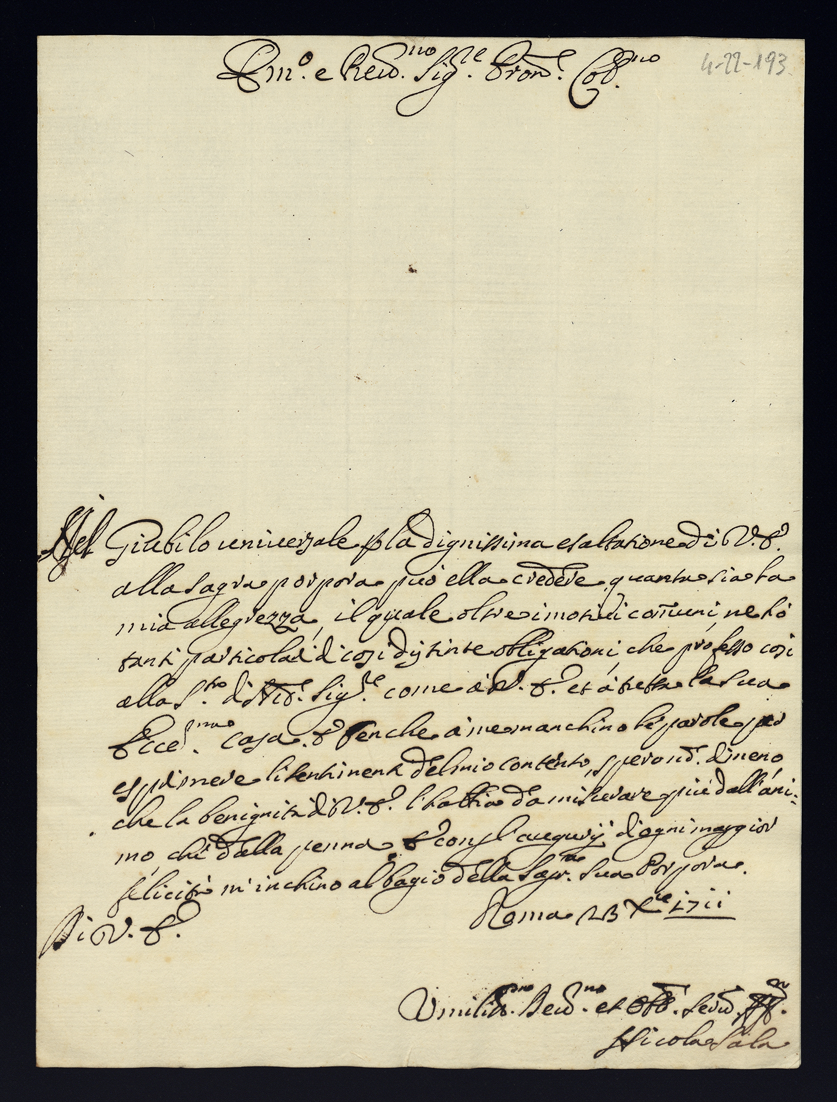 Em.o e Reu.mo Sig.re Pron.e Col.mo
4-22-193
Nel Giubilo uniuersale p la dignissima esaltatione di V. E.
alla sagra porpora può ella credere quanta sia la
mia allegrezza, il quale oltre i motiui com̃uni, ne hò
tanti particolari di cosi distinte obligationi, che professo cosi
alla S.tà di N.ro Sig.re come à V. E. et à tutta la sua
Ecce.ma casa. E benche à me manchino le parole per
esprimere li sentimenti del mio contento, spero nõ. dimeno
che la benignità di V. E. l'habbia da misurare più dall'ani=
mo che dalla penna. E con gl'augurij d'ogni maggior
felicità m'inchino al bagio della Sagr.ma Sua Porpora.
Di V. E.
Roma 23 Xbre 1711
Umiliss.mo Deu.mo et Obb. Seru.
Nicola Sala